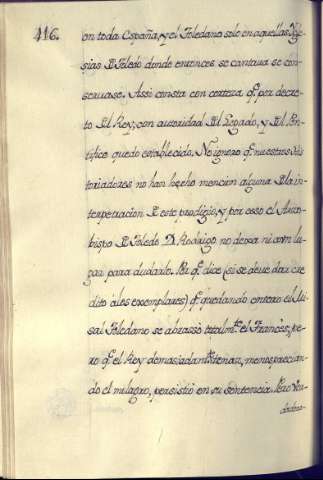 116.
en toda España, y el Toledano solo en aquellas Igle-
sias de Toledo donde entonces se cantava se con-
servase. Assi consta con certeza q.e por decre-
to del Rey, con autoridad del Legado, y del Pon-
tifice quedo establecido. No ignoro q.e nuestros His-
toriadores no han hecho mencion alguna de la in-
terpretacion de este prodigio, y por esso el Arzo-
bispo de Toledo D. Rodrigo no dexa ni aun lu-
gar para dudarlo. P.r q.e dice (si se deve dar cre-
dito à los exemplares) q.e quedando entero el Mi-
sal Toledano se abrassò totalm.te el Frances, pe-
ro q.e el Rey demasiadam.te tenaz, menospreciar-
do el milagro, persistiò en su sentencia. Pero